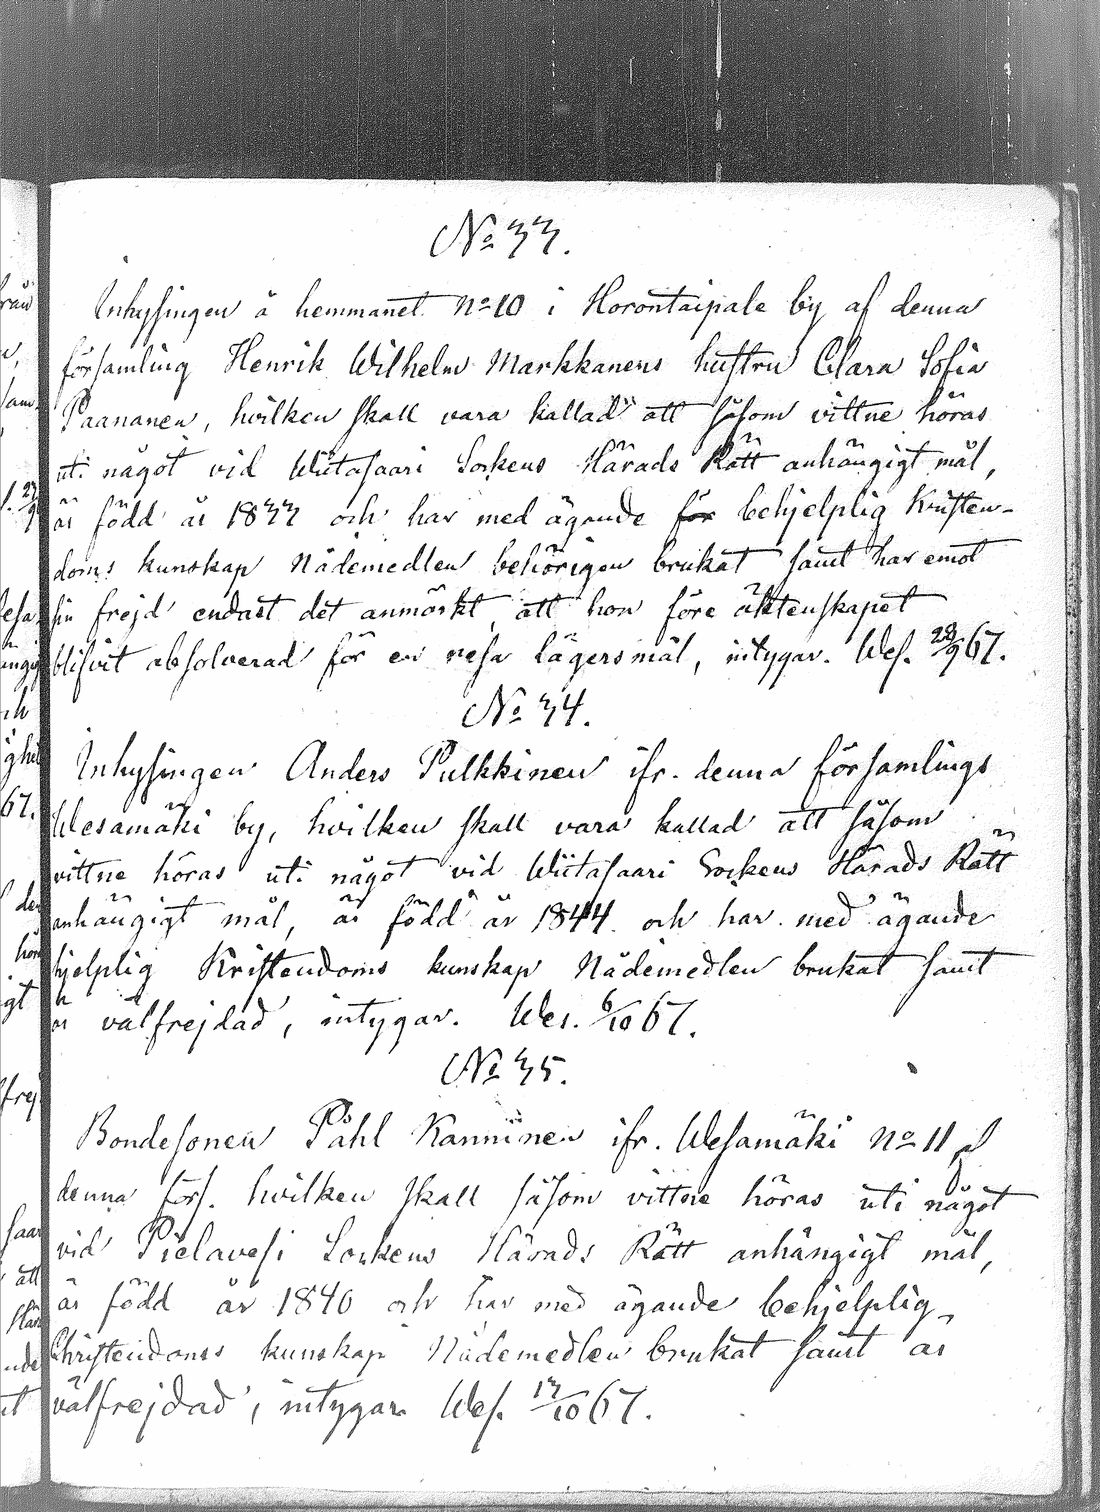 No 33.
Inhysingen å hemmanet No 10 i Horontaipale by af denna
församling Henrik Wilhelm Markkanens hustru Clara Sofia
Paananen, hvilken skall vara kallad att såsom vittne höras
uti något vid Wiitasaari Sockens Härads Rätt anhängigt mål,
är född år 1833 och har med ägande för behjelplig Kristen-
doms kunskap Nådemedlen behörigen brukat samt har emot
sin frejd endast det anmärkt, att hon före äktenskapet
blifvit absolverad för en resa lägersmål, intygar. Wes. 28/9 67.
No 34.
Inhysingen Anders Pulkkinen ifr. denna församlings
Wesamäki by, hvilken skall vara kallad att såsom
vittne höras uti något vid Wiitasaari Sockens Härads Rätt
anhängigt mål, är född år 1844 och har med ägande
hjelplig Kristendoms kunskap Nådemedlen brukat samt
är välfrejdad, intygar. Wes. 6/10 67.
No 35.
Bondesonen Påhl Kanninen ifr. Wesamäki No 11 af
denna förs. hvilken skall såsom vittne höras uti något
vid Pielavesi Sockens Härads Rätt anhängigt mål,
är född år 1840 och har med ägande behjelplig
Christendoms kunskap Nådemedlen brukat samt är
välfrejdad, intygar Wes. 13/10 67.